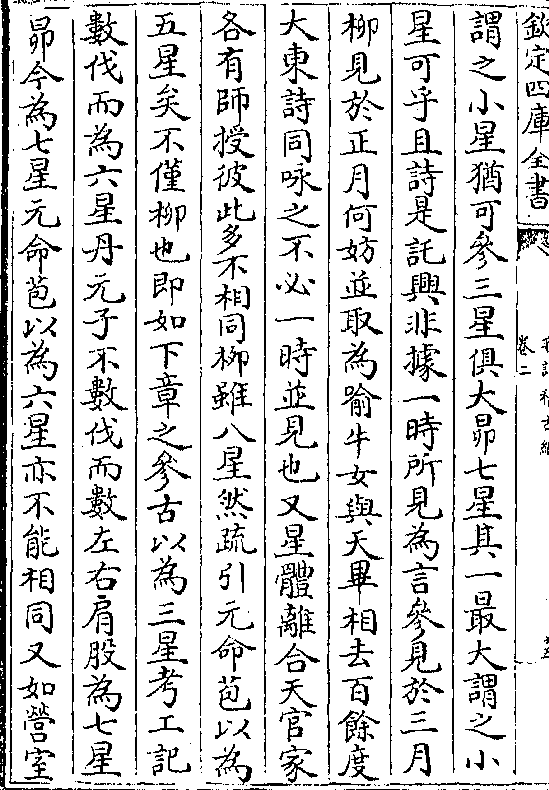 欽定四庫全書
卷二
謂之小星猶可參三星俱大昴七星其一最大謂之小
星可乎且詩是託興非據一時所見為言參見於三月
柳見於正月何妨並取為喻牛女與天畢相去百餘度
大東詩同咏之不必一時並見也又星體離合天官家
各有師授彼此多不相同柳雖八星然疏引元命苞以為
五星矣不僅柳也即如下章之參古以為三星考工記
數伐而為六星丹元子不數伐而數左右肩股為七星
昴今為七星元命苞以為六星亦不能相同又如營室